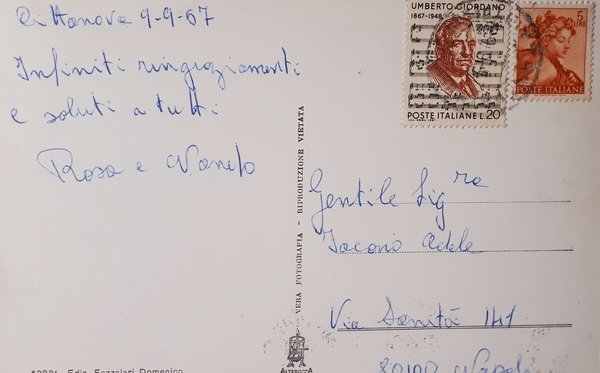 Cittanova 9-9-67
Infiniti ringraziamenti
e saluti a tutti
Rosa e
UMBERTO GIORDANO
1867-1948
POSTE ITALIANE L.20
5
LIRE
POSTE ITALIANE
VERA FOTOGRAFIA - RIPRODUZIONE VIETATA
Gentile Sig.ra
Iacono Adele
Via Sanità 141
80100 Napoli
52881 Ediz. Fazzolari Domenico
ALTEROCCA